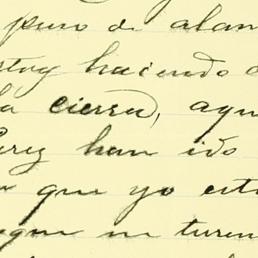 puro de alam
stoy haciendo a
la cierra, aqu
Perez han ido
que yo est
que me turen